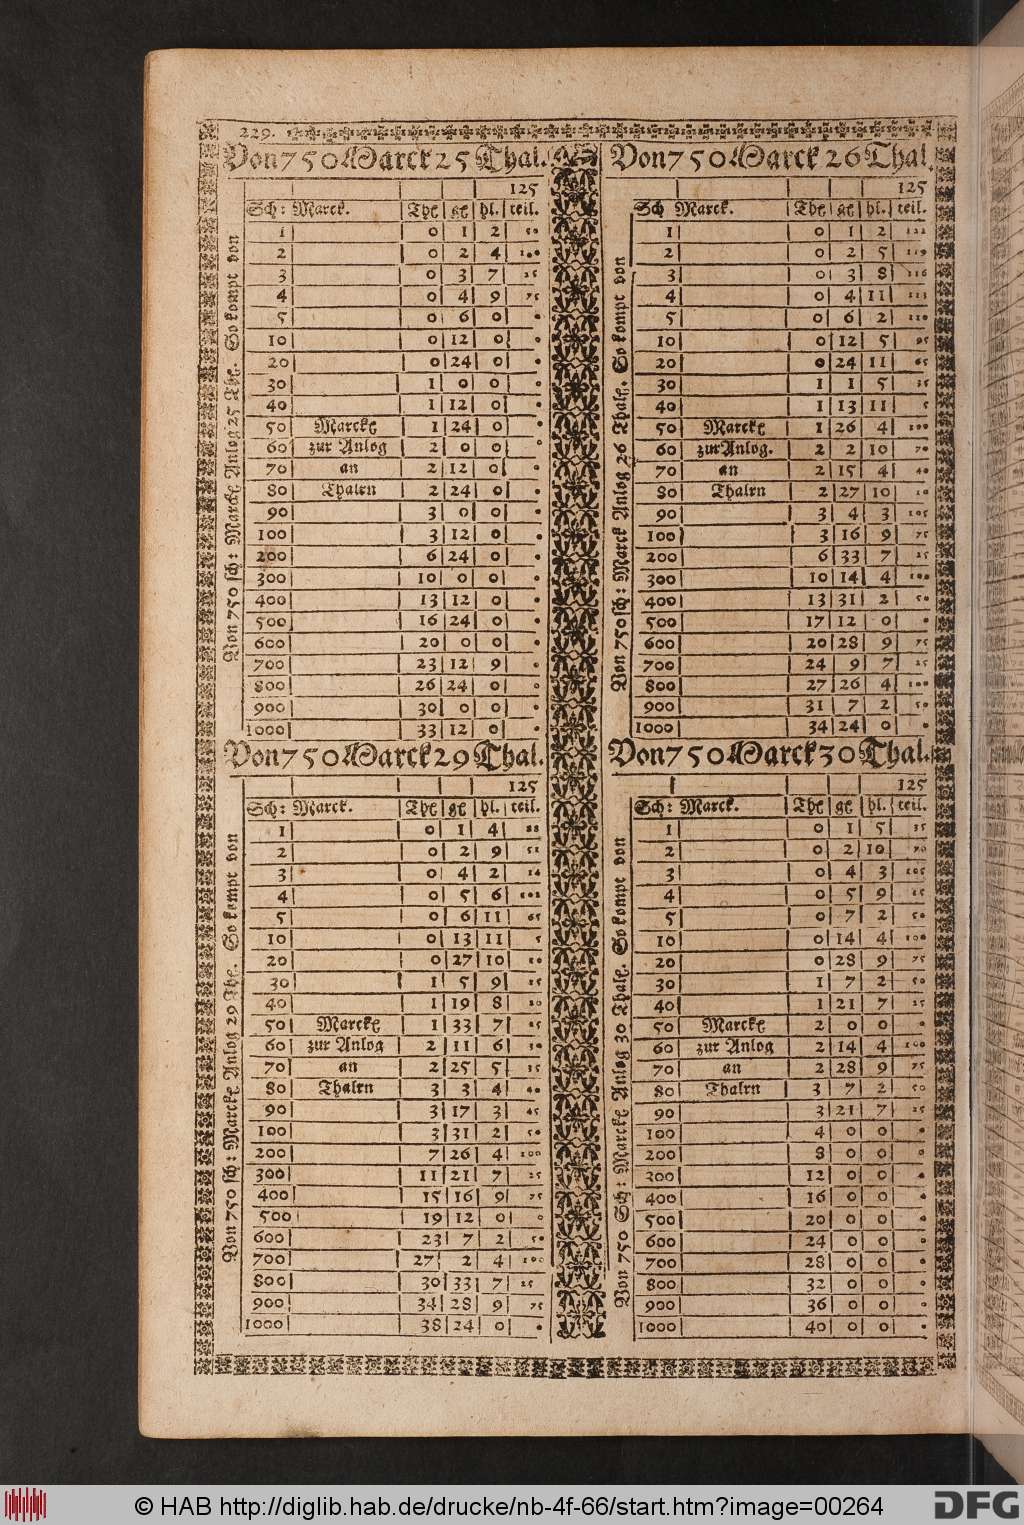 229.
Von 750 Marck 25 Thal.
125
Sch: Marck. Thl gl hl. teil.
1 0 1 2 50
2 0 2 4 100
3 0 3 7 25
4 0 4 9 75
5 0 6 0 0
10 0 12 0 0
20 0 24 0 0
30 1 0 0 0
40 1 12 0 0
50 Marcke 1 24 0 0
60 zur Anlog 2 0 0 0
70 an 2 12 0 0
80 Thalrn 2 24 0 0
90 3 0 0 0
100 3 12 0 0
200 6 24 0 0
300 10 0 0 0
400 13 12 0 0
500 16 24 0 0
600 20 0 0 0
700 23 12 9 0
800 26 24 0 0
900 30 0 0 0
1000 33 12 0 0
Von 750 sch: Marcke Anlog 25 Thl. So kompt von
Von 750 Marck 26 Thal.
125
Sch Marck. Thl gl hl. teil.
1 0 1 2 122
2 0 2 5 119
3 0 3 8 116
4 0 4 11 113
5 0 6 2 110
10 0 12 5 95
20 0 24 11 65
30 1 1 5 35
40 1 13 11 5
50 Marcke 1 26 4 100
60 zur Anlog. 2 2 10 70
70 an 2 15 4 40
80 Thalrn 2 27 10 10
90 3 4 3 105
100 3 16 9 75
200 6 33 7 25
300 10 14 4 100
400 13 31 2 50
500 17 12 0 0
600 20 28 9 75
700 24 9 7 25
800 27 26 4 100
900 31 7 2 50
1000 34 24 0 0
Von 750 sch: Marck Anlog 26 Thall. So kompt von
Von 750 Marck 29 Thal.
125
Sch: Marck. Thl gl hl. teil.
1 0 1 4 88
2 0 2 9 51
3 0 4 2 14
4 0 5 6 102
5 0 6 11 65
10 0 13 11 5
20 0 27 10 10
30 1 5 9 15
40 1 19 8 20
50 Marcke 1 33 7 25
60 zur Anlog 2 11 6 30
70 an 2 25 5 35
80 Thalrn 3 3 4 40
90 3 17 3 45
100 3 31 2 50
200 7 26 4 100
300 11 21 7 25
400 15 16 9 75
500 19 12 0 0
600 23 7 2 50
700 27 2 4 100
800 30 33 7 25
900 34 28 9 75
1000 38 24 0 0
Von 750 sch: Marcke Anlog 29 Thl. So kompt von
Von 750 Marck 30 Thal.
125
Sch: Marck. Thl gl hl. teil.
1 0 1 5 35
2 0 2 10 70
3 0 4 3 105
4 0 5 9 15
5 0 7 2 50
10 0 14 4 100
20 0 28 9 75
30 1 7 2 50
40 1 21 7 25
50 Marcke 2 0 0 0
60 zur Anlog 2 14 4 100
70 an 2 28 9 75
80 Thalrn 3 7 2 50
90 3 21 7 25
100 4 0 0 0
200 8 0 0 0
300 12 0 0 0
400 16 0 0 0
500 20 0 0 0
600 24 0 0 0
700 28 0 0 0
800 32 0 0 0
900 36 0 0 0
1000 40 0 0 0
Von 750 Sch: Marcke Anlog 30 Thall. So kompt von
© HAB http://diglib.hab.de/drucke/nb-4f-66/start.htm?image=00264
DFG